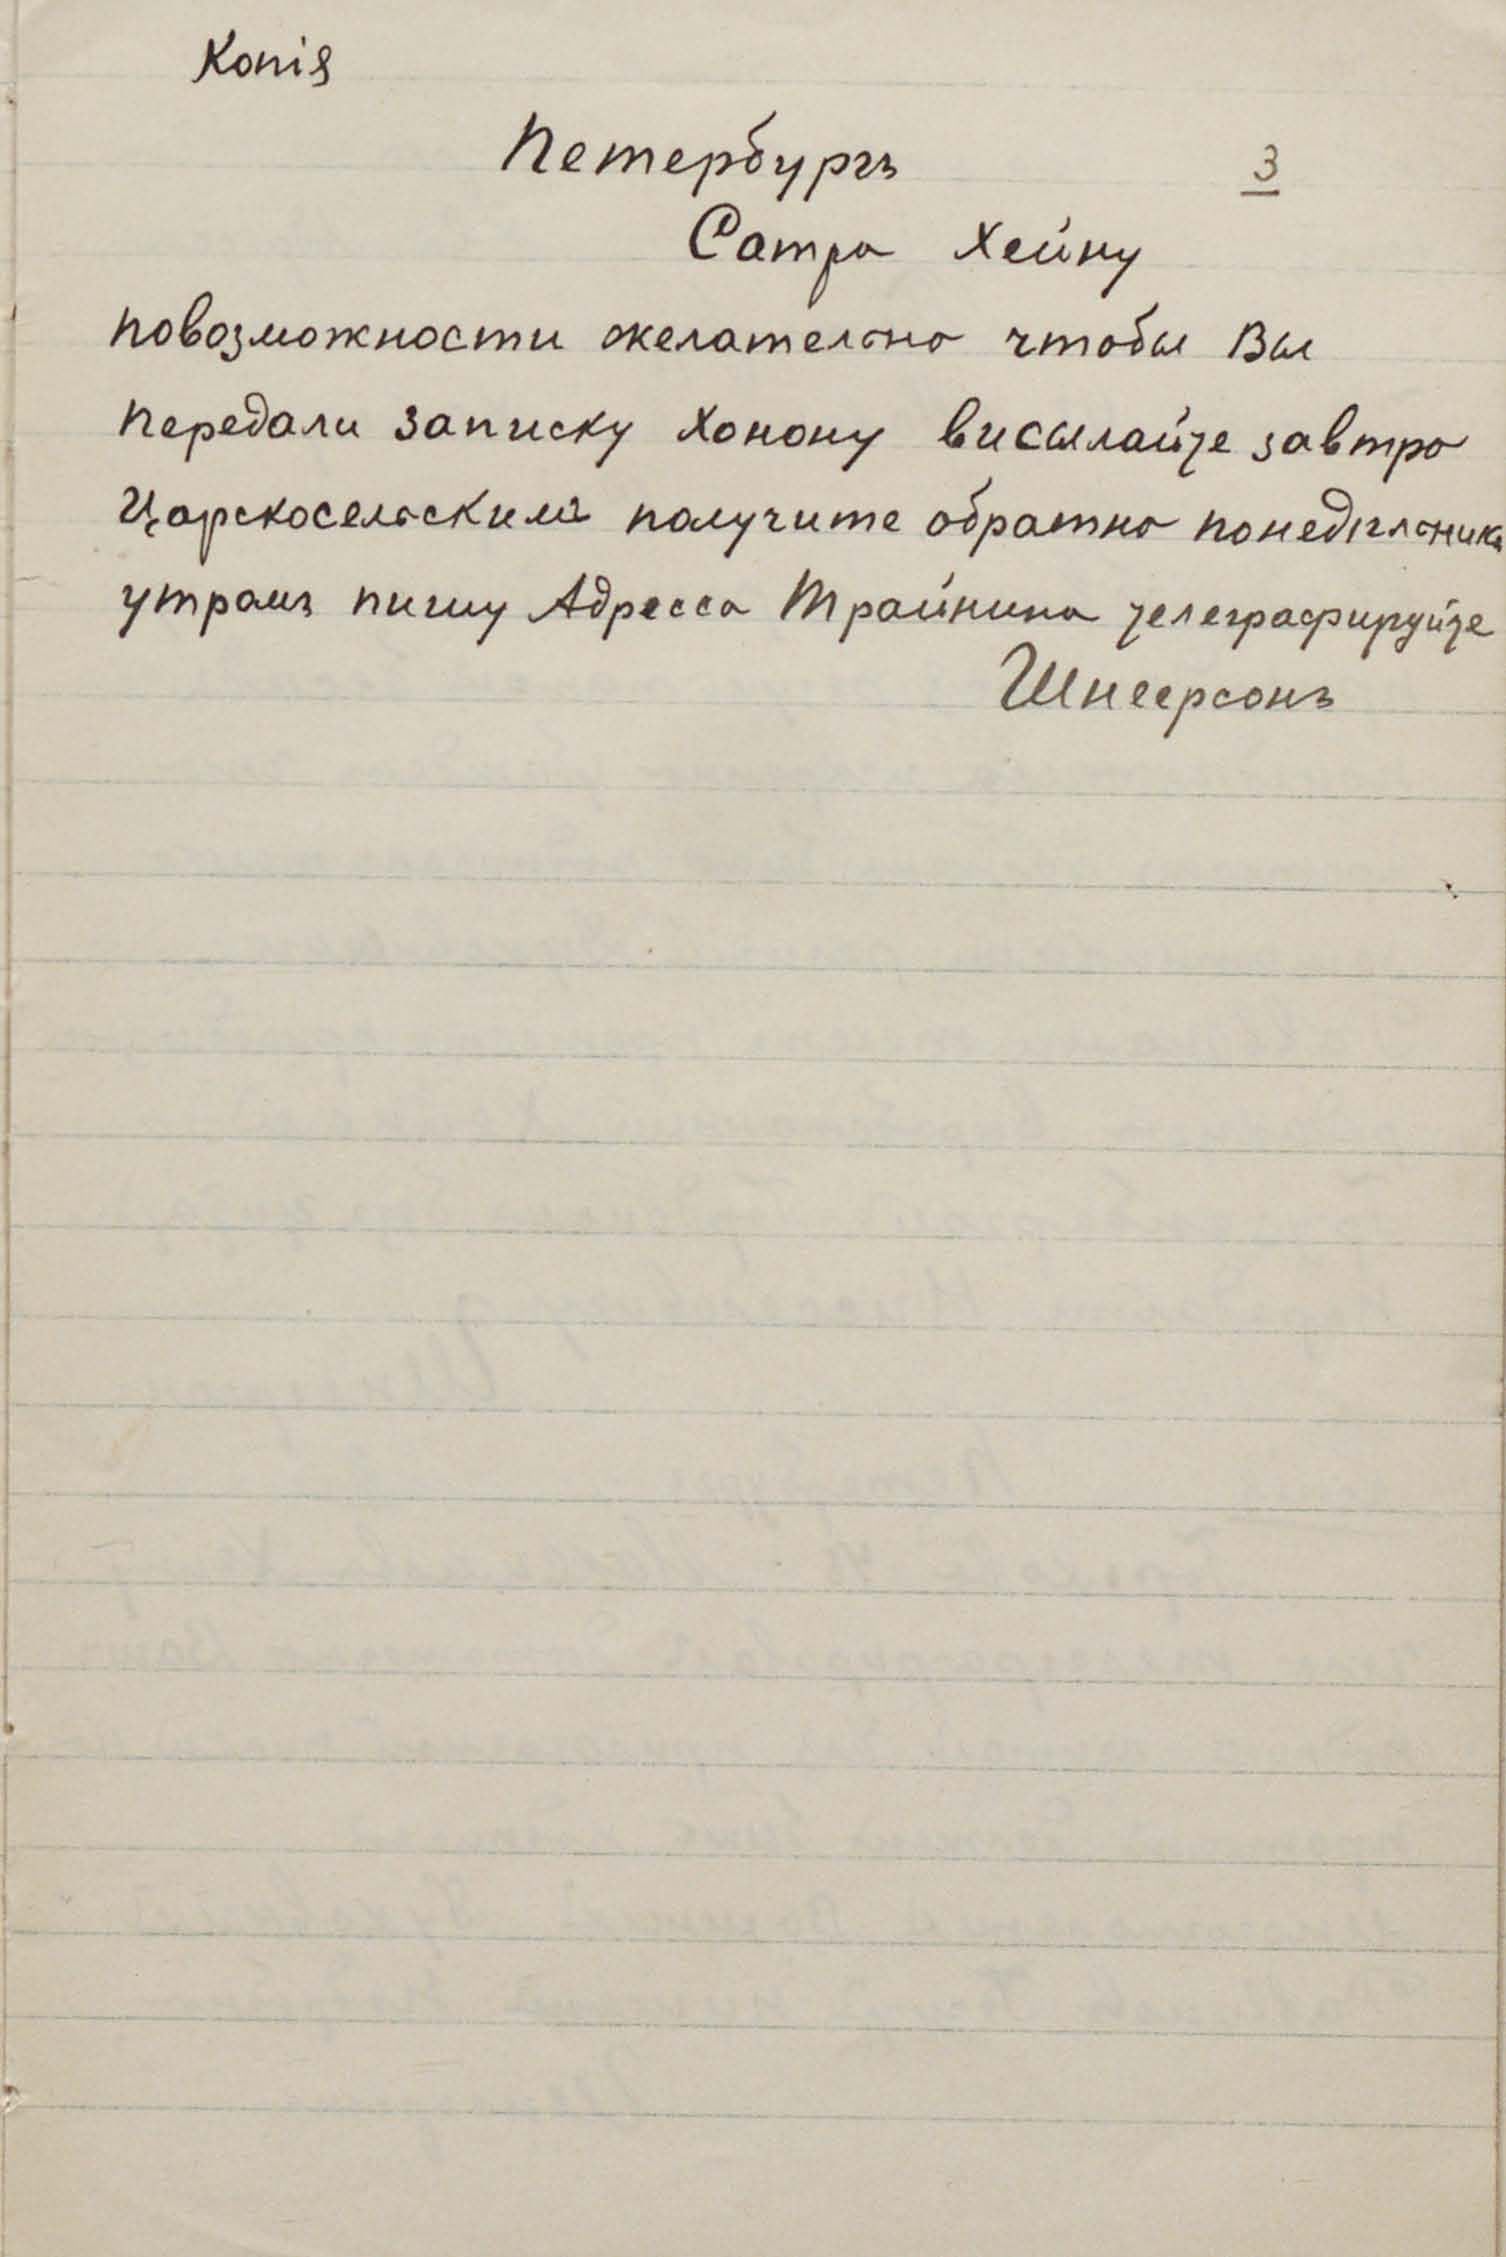 Копія
Петербургъ
3
Сатра Хейну
повозможности желательно чтобы Вы
передали записку Хонону висылайте завтра
Царскосельскимъ получите обратно понедѣльника
утромъ пишу Адресса Трайнина телеграфируйте
Шнеерсонъ